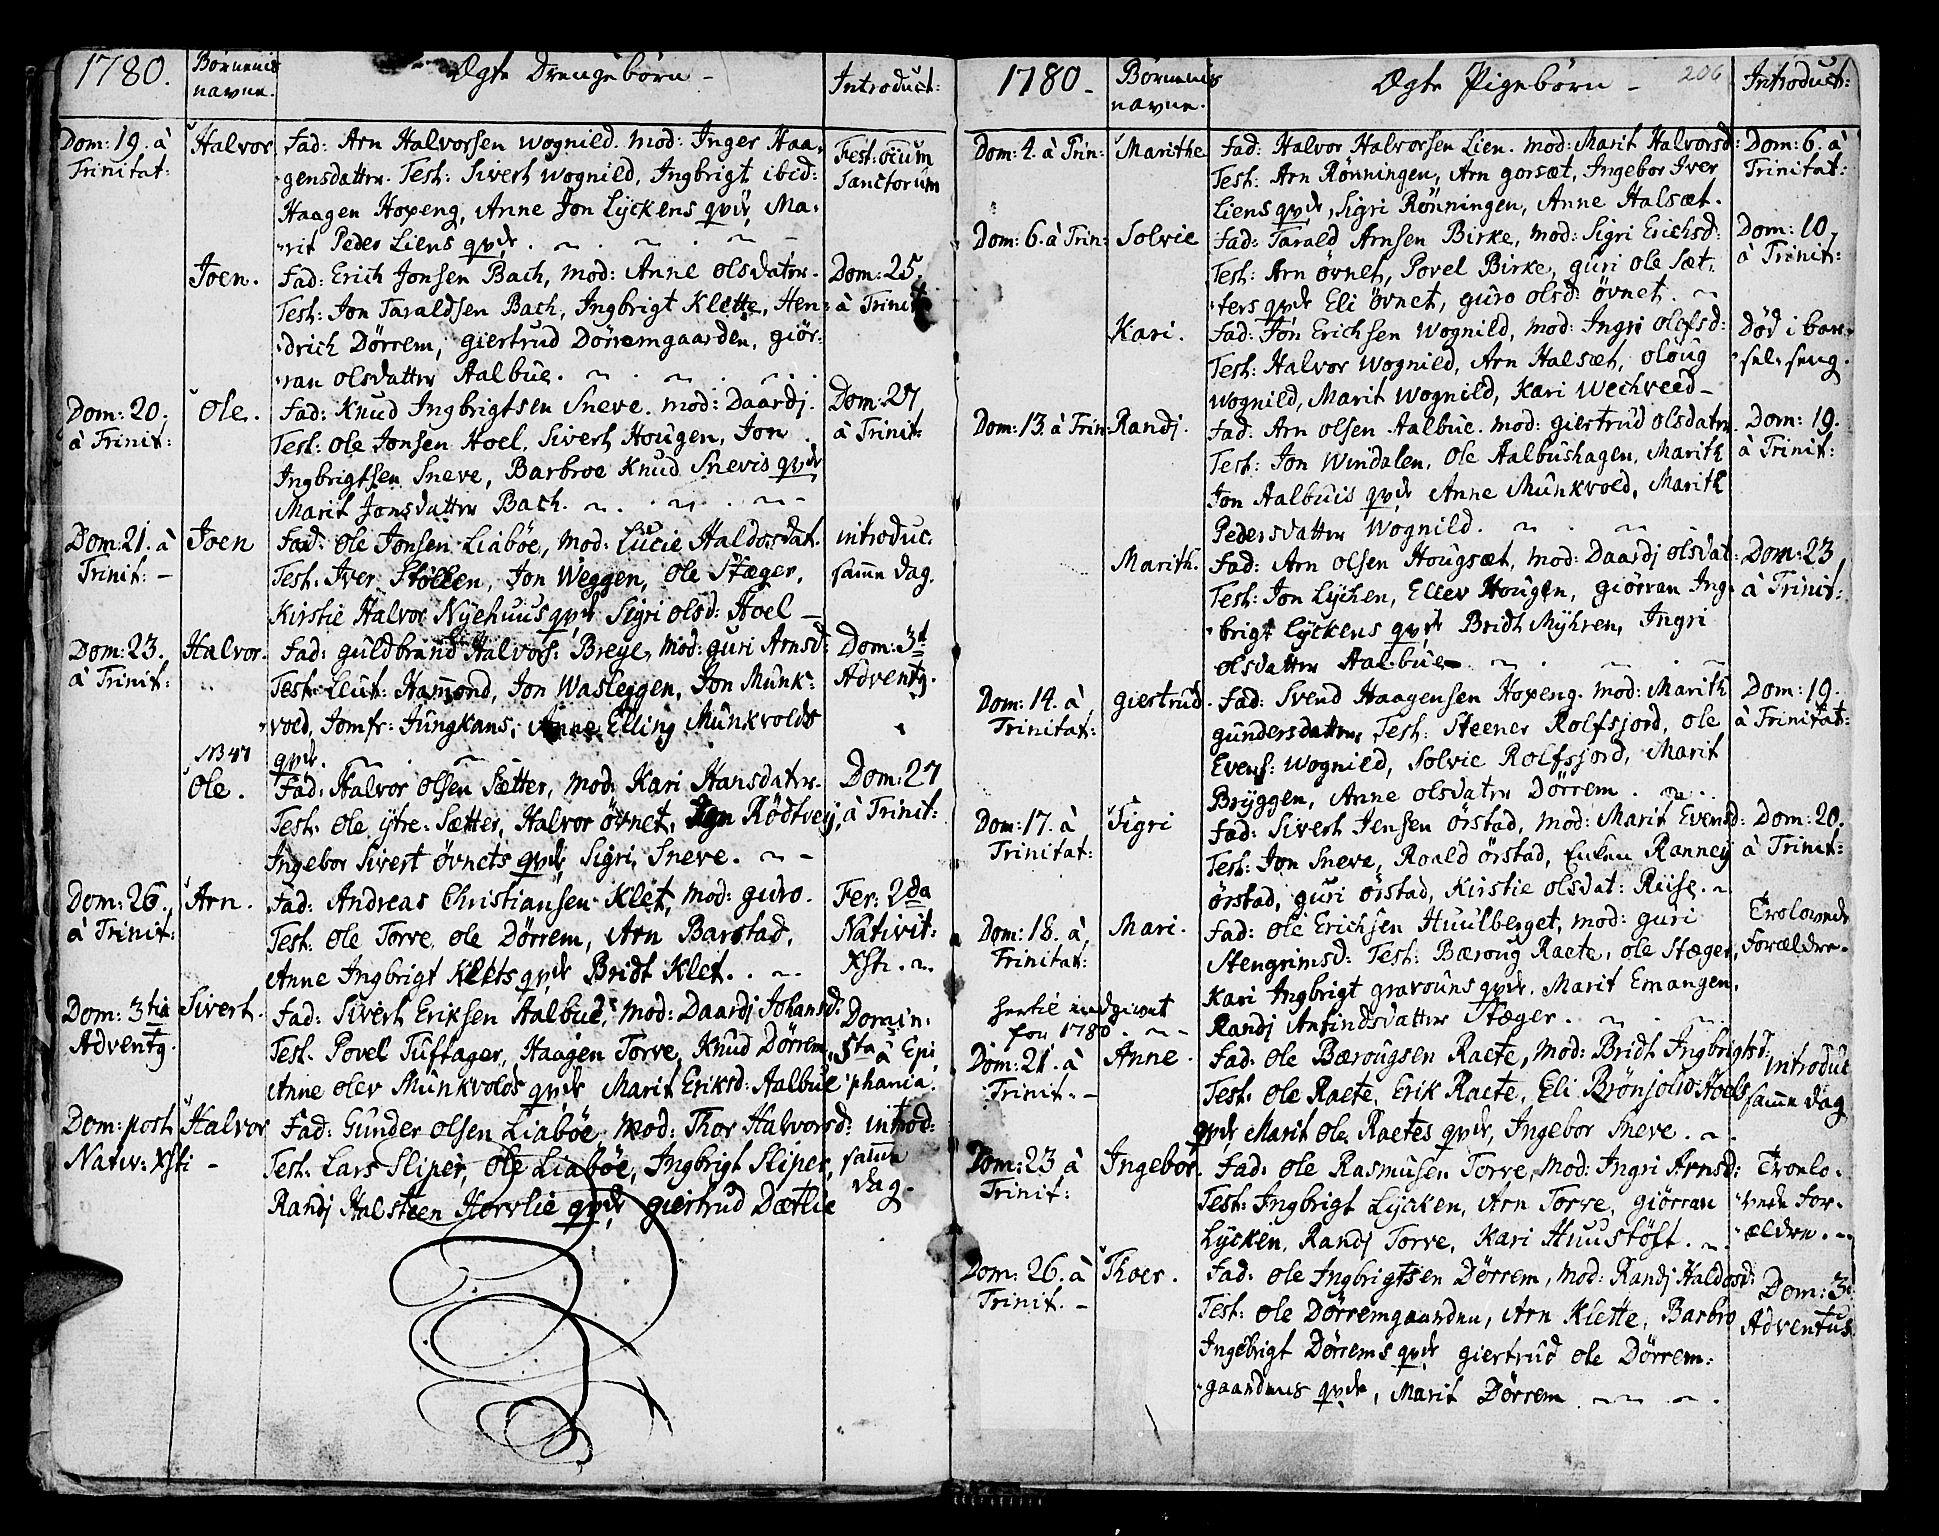 1780.
Børnenis
navne.
Ægte Drengebørn -
Introduct:
Dom: 19. à
Trinitat:
Halvor
Fad: Arn Halvorsen Wognild. mod: Inger Haa-
gensdatter. Test: Sivert Wognild, Ingbrigt ibid:
Haagen Hoxeng, Anne Jon Lyckens qvdr, Ma-
rit Peder Liens qvdr.
Fest: oĩum
Sanctorum
Joen.
Fad: Erich Jonsen Bach, mod: Anne olsdatter.
Test: Jon Taraldsen Bach, Ingbrigt Klette, Hen-
drich Dörrem, giertrud Dörremgaarden, giör-
ran olsdatter Aalbue.
Dom: 25.
à Trinit
Dom: 20.
à Trinit:
Ole.
Fad: Knud Ingbrigtsen Sneve. mod: Daardj.
Test: ole Jonsen Hoel, Sivert Hougen, Jon
Ingbrigtsen Sneve, Barbroe Knud Snevis qvdr
Marit Jonsdatter Bach.
Dom: 27
à Trinit:
Dom: 21. à
Trinit: -
Joen
Fad: ole Jonsen Liaböe, mod: Lucie Haldorsdat.
Test. Iver Stöllen, Jon Weggen, ole Stæger,
Kirstie Halvor Nyehuus qvdr Sigri olsd: Hoel -
introduc.
samme dag.
Dom: 23.
à Trinit:
Halvor.
Fad: guldbrand Halvors: Breye, mod: guri Arnsd:
Test: Leut: Hamond, Jon Wasleggen, Jon Munk-
vold, Jomfr: Jungkans, Anne Elling Munkvolds
qvdr.
Dom: 3t
Adventg.
NB 47
Ole.
Fad: Halvor olsen Sætter, mod: Kari Hansdatter.
Test. ole ÿtre-Sætter, Halvor övnet, Jon Rödtvej,
Ingebor Sivert övnets qvdr, Sigri Sneve.
Dom: 27
à Trinit:
Dom: 26.
à Trinit:
Arn.
Fad: Andreas Christiansen Klet, mod: guro.
Test. ole Torve. ole Dörrem, Arn Barstad,
Anne Ingbrigt Klets qvdr Bridt Klet.
Fer: 2da
Nativit:
Xsti.
Dom: 3tia
Adventg.
Sivert.
Fad: Sivert Eriksen Aalbue, mod: Daardj Johansd.
Test. Povel Tuftager, Haagen Torve, Knud Dörrem,
Anne olev Munkvolds qvdr Marit Eriksd: Aalbue
Domin:
5ta à Epi
phania.
Dom: post
Nativ: Xsti -
Halvor
Fad: Gunder olsen Liaböe, mod: Thor Halvorsd:
Test. Lars Sliper, ole Liaböe, Ingbrigt Sliper,
Randj Halsteen Horrlie qvdr giertrud Dætlie
introd:
samme
dag.
1780 -
Børnenis
navne.
Ægte Pigebörn -
206
Introduct:
Dom: 4. à Trin:
Marithe
Fad: Halvor Halvorsen Lien. mod: Marit Halvorsd:
Test: Arn Rönningen, Arn gorsæt, Ingebor Iver
Liens qvdr, Sigri Rönningen, Anne Halsæt.
Dom: 6. à
Trinitat:
Dom: 6. à Trin:
Solvie
Fad: Tarald Arnsen Birke, mod: Sigri Erichsd:
Test: Arn övnet, Povel Birke, guri ole Sæt-
ters qvdr Eli övnet, guro olsd: övnet.
Dom: 10,
à Trinit:
Kari.
Fad: Jon Erichsen Wognild, mod: Ingri olefsd:
Test: Halvor Wognild, Arn Halsæt, oloug
Wognild, Marit Wognild, Kari Wechveed -
Död i bar-
sel-seng.
Dom: 13. à Trin:
Randj.
Fad: Arn olsen Aalbue. mod: giertrud olsdatter
Test: Jon Windalen, ole Aalbushagen, Marith
Jon Aalbuis qvdr Anne Munkvold, Marith
Pedersdatter Wognild.
Dom: 19.
à Trinit:
Marith.
Fad: Arn olsen Hougsæt, mod: Daardj olsdat:
Test: Jon Lychen, Ellev Hougen, giörran Ing-
brigt Lyckens qvdr Bridt Myhren, Ingri
olsdatter Aalbue -
Dom: 23
à Trinit:
Dom: 14. à
Trinitat:
giertrud.
Fad: Svend Haagensen Hoxeng. mod: Marith
gundersdatter, Test: Steener Rolfsjord, ole
Evens: Wognild, Solvie Rolfsjord, Marit
Bryggen, Anne olsdatter Dörrem.
Dom: 19.
à Trinitat:
Dom: 17. à
Trinitat:
Sigri
Fad: Sivert Jensen örstad, mod: Marit Evensd:
Test: Jon Sneve, Roald örstad, Enken Ranney
örstad, guri örstad, Kirstie olsdat: Reise.
Dom: 20.
à Trinit:
Dom: 18. à
Trinitat:
Mari.
Fad: ole Erichsen Huulberget, mod: guri
Stengrimsd: Test: Bæroug Raete, ole Stæger,
Kari Ingbrigt gravouns qvdr. Marit Emangen,
Randj Anfindsdatter Stæger.
Trolovede
Forældre.
hertil indgivet
for 1780.
Dom: 21. à
Trinit: -
Anne.
Fad: ole Bærougsen Raete, mod: Bridt Ingbrigtsd.
Test: ole Raete, Erik Raete, Eli Brönjolid Hoels
qvdr, Marit ole Raetes qvdr, Ingebor Sneve.
introduc
samme dag
Dom: 23 à
Trinit:
Ingebor.
Fad: ole Rasmusen Torve, mod: Ingri Arnsd:
Test: Ingbrigt Lycken, Arn Torve, giörran
Lycken, Randj Torve, Kari Huustöft.
Troelo-
vede For-
ældre.
Dom: 26. à
Trinit. -
Thoer.
Fad: ole Ingbrigtsen Dörrem, mod: Randj Haldosd:
Test: ole Dörremgaarden, Arn Klette, Barbro
Ingebrigt Dörrems qvdr giertrud ole Dörrem-
gaardens qvdr, Marit Dörrem
Dom: 3.
Adventus.